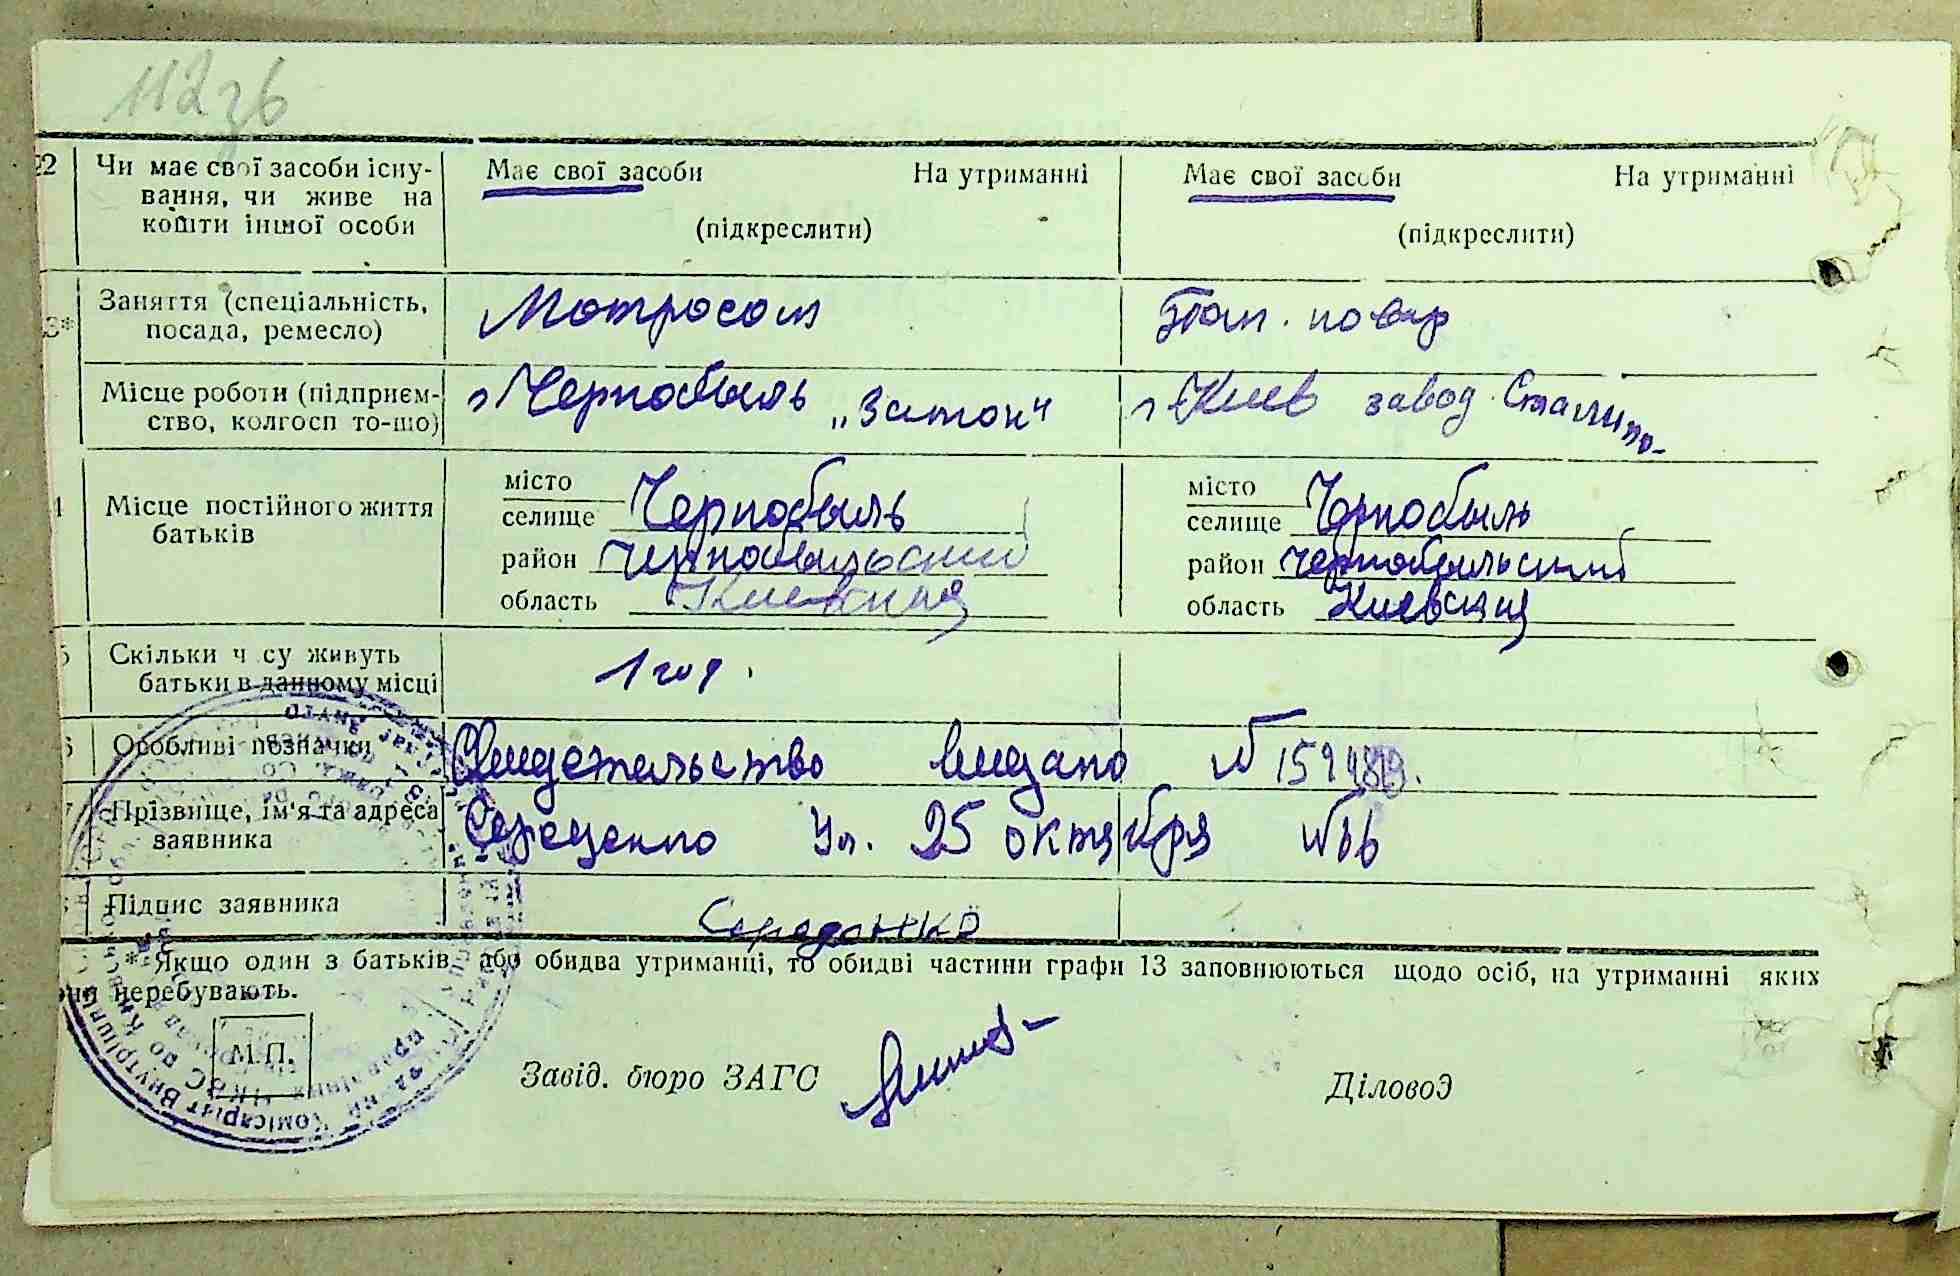 112зв
22 Чи має свої засоби існу- Має свої засоби На утриманні Має свої засоби На утриманні
вання, чи живе на
кошти іншої особи (підкреслити) (підкреслити)
3* Заняття (спеціальність, Мотросом повар
посада, ремесло)
Місце роботи (підприєм- г Чернобыль „Затон“ г Киев завод Сталина
ство, колгосп то-що)
місто місто
4 Місце постійного життя селище Чернобыль селище Чернобыль
батьків район Чернобыльский район Чернобыльский
область Киевская область Киевская
5 Скільки ч су живуть 1 год.
батьки в данному місці
6 Особливі позначки Свидетельство видано №
7 Прізвище, ім'я та адреса Середенко Ул. 25 октября №
заявника
Підпис заявника Середенко
* Якщо один з батьків, або обидва утриманці, то обидві частини графи 13 заповнюються щодо осіб, на утриманні яких
они перебувають.
М.П.
Завід. бюро ЗАГС Діловод